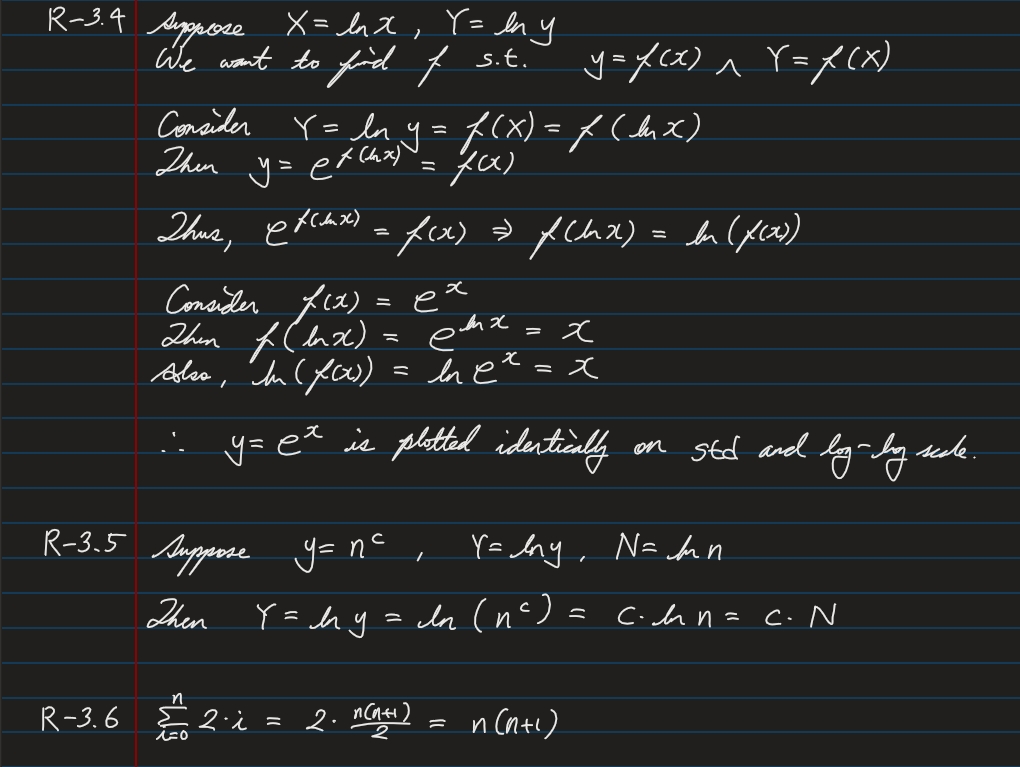 R-3.4 Suppose X = ln x , Y = ln y
We want to find f s.t. y = f(x) ∧ Y = f(X)
Consider Y = ln y = f(X) = f(ln x)
Then y = e^{f(ln x)} = f(x)
Thus, e^{f(ln x)} = f(x) ⇒ f(ln x) = ln(f(x))
Consider f(x) = e^x
Then f(ln x) = e^{ln x} = x
Also, ln(f(x)) = ln e^x = x
∴ y = e^x is plotted identically on std and log-log scale.
R-3.5 Suppose y = n^c , Y = ln y , N = ln n
Then Y = ln y = ln (n^c) = c · ln n = c · N
R-3.6 \sum_{i=0}^{n} 2 · i = 2 · \frac{n(n+1)}{2} = n(n+1)